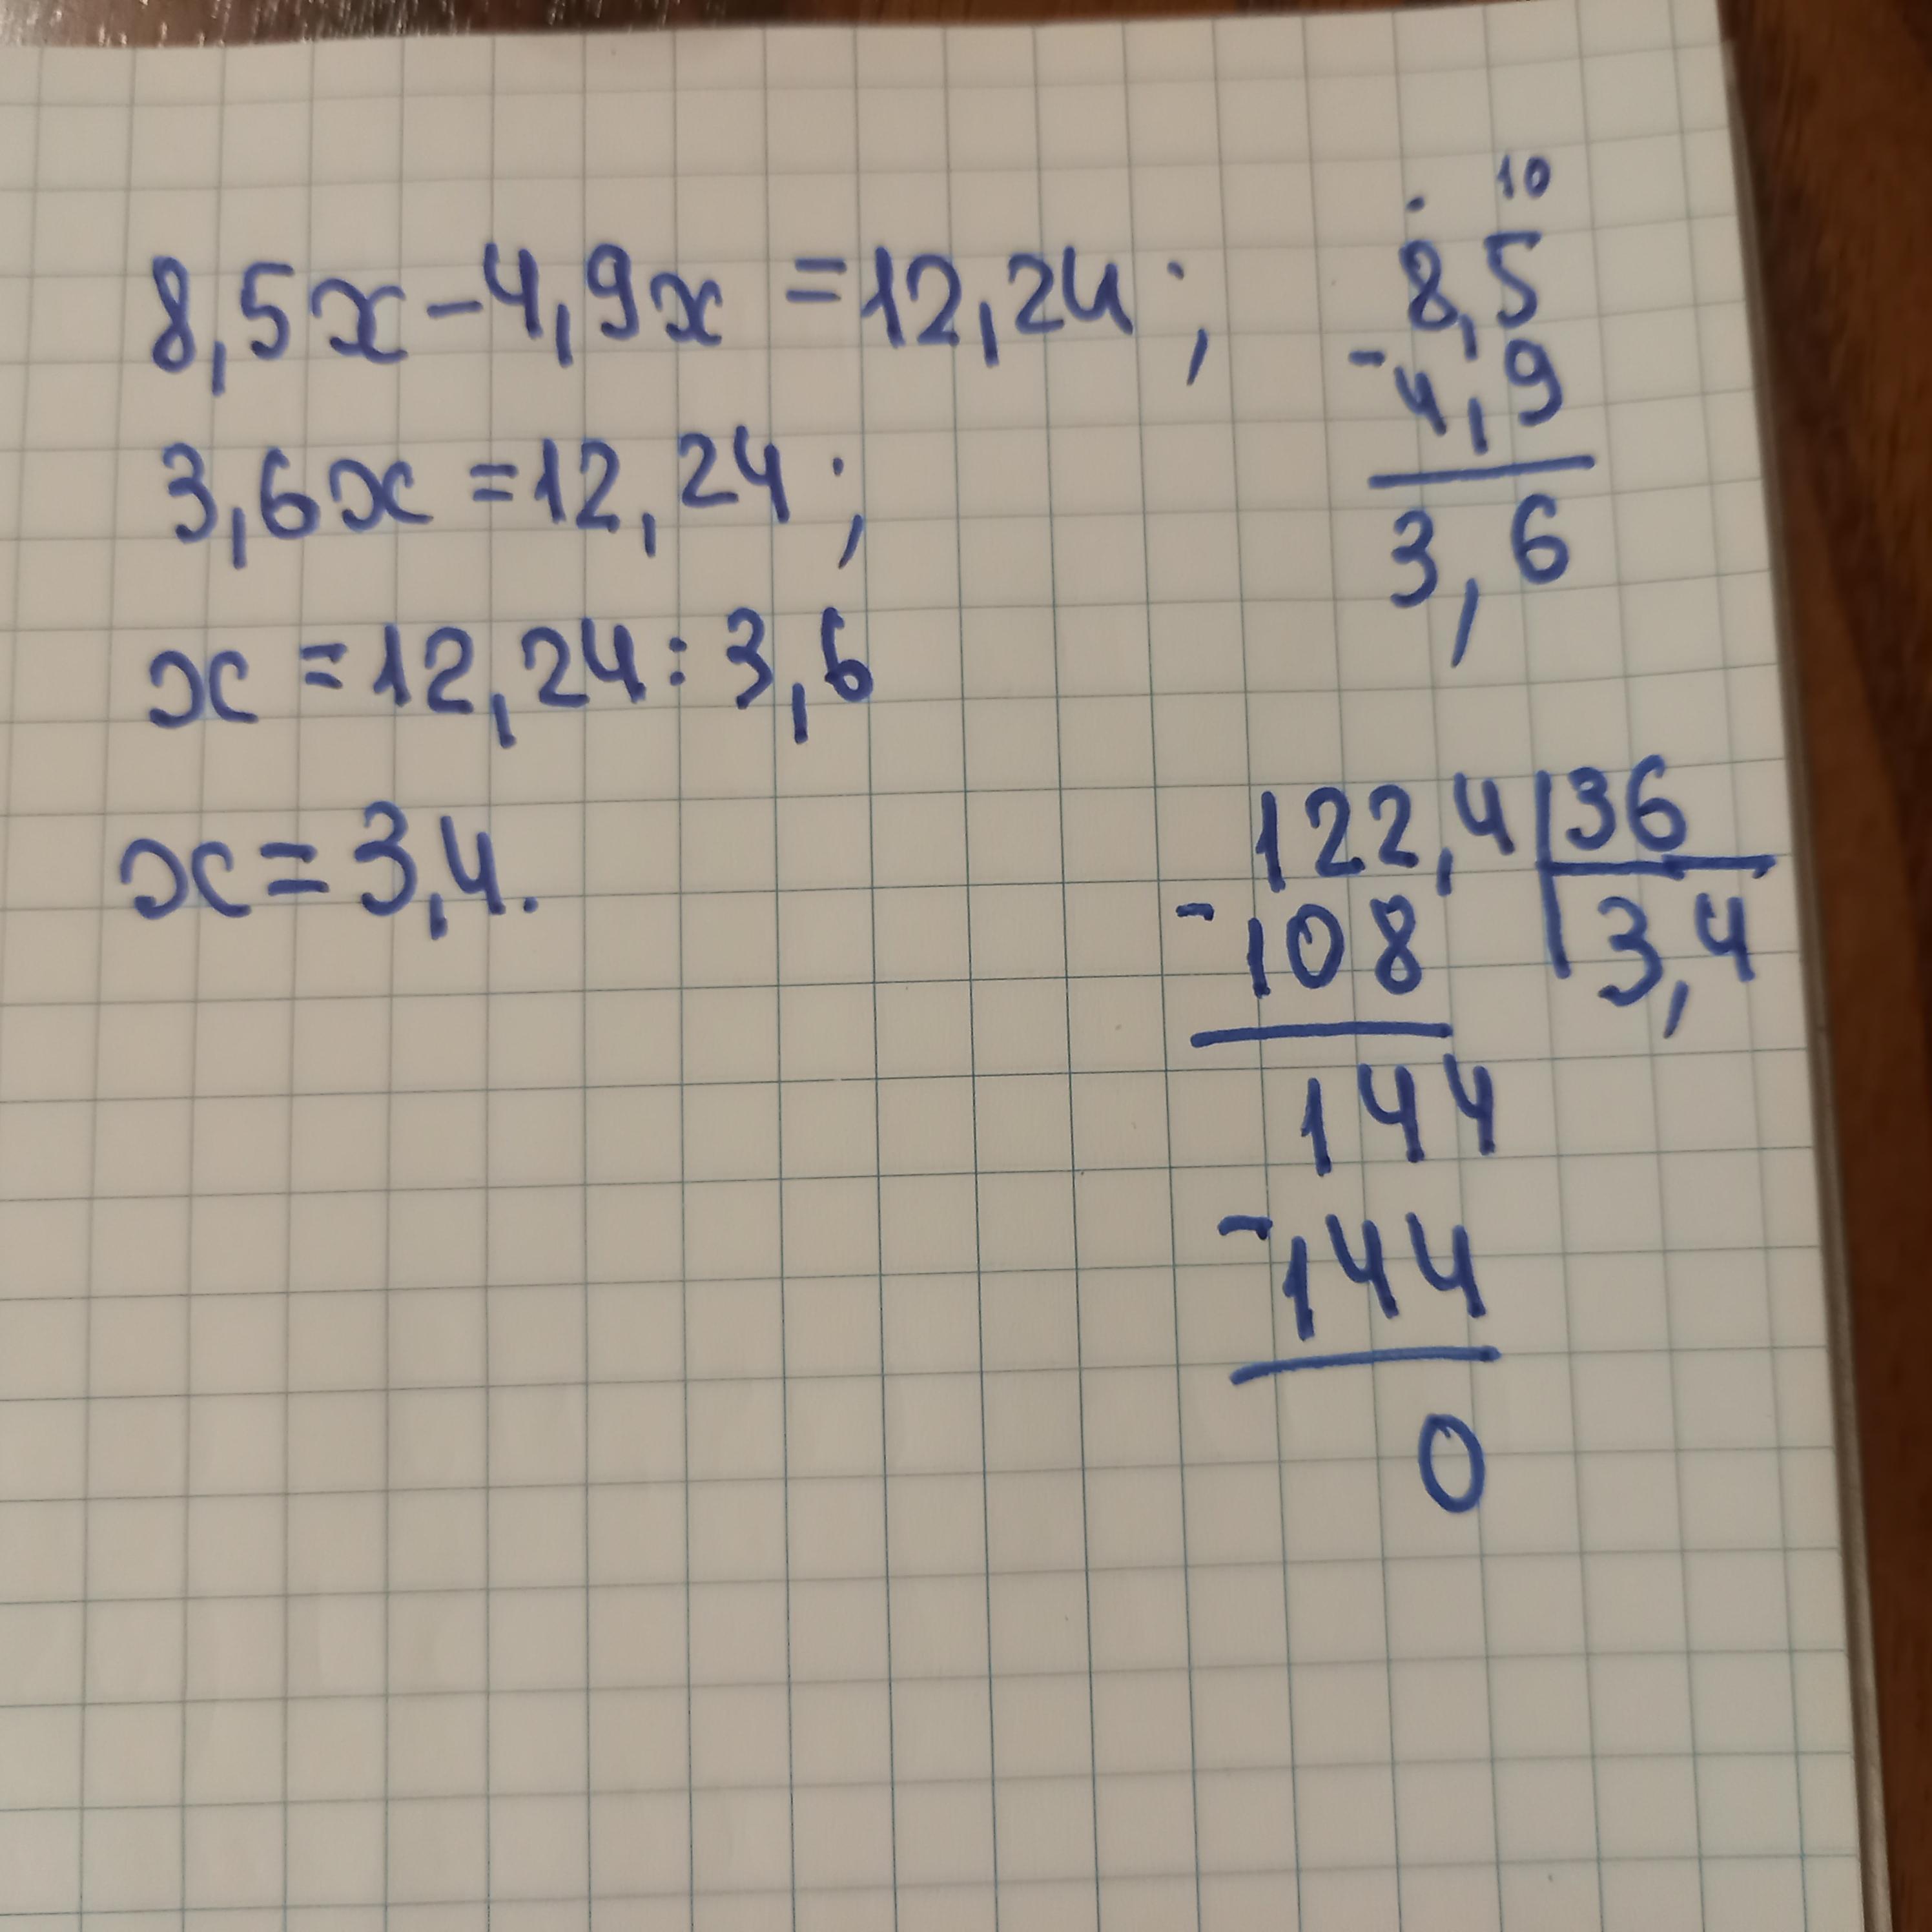 8,5x-4,9x=12,24;
3,6x=12,24;
x=12,24:3,6
x=3,4.
10
8,5
-4,9
3,6
122,4|36
-108|3,4
144
-144
0